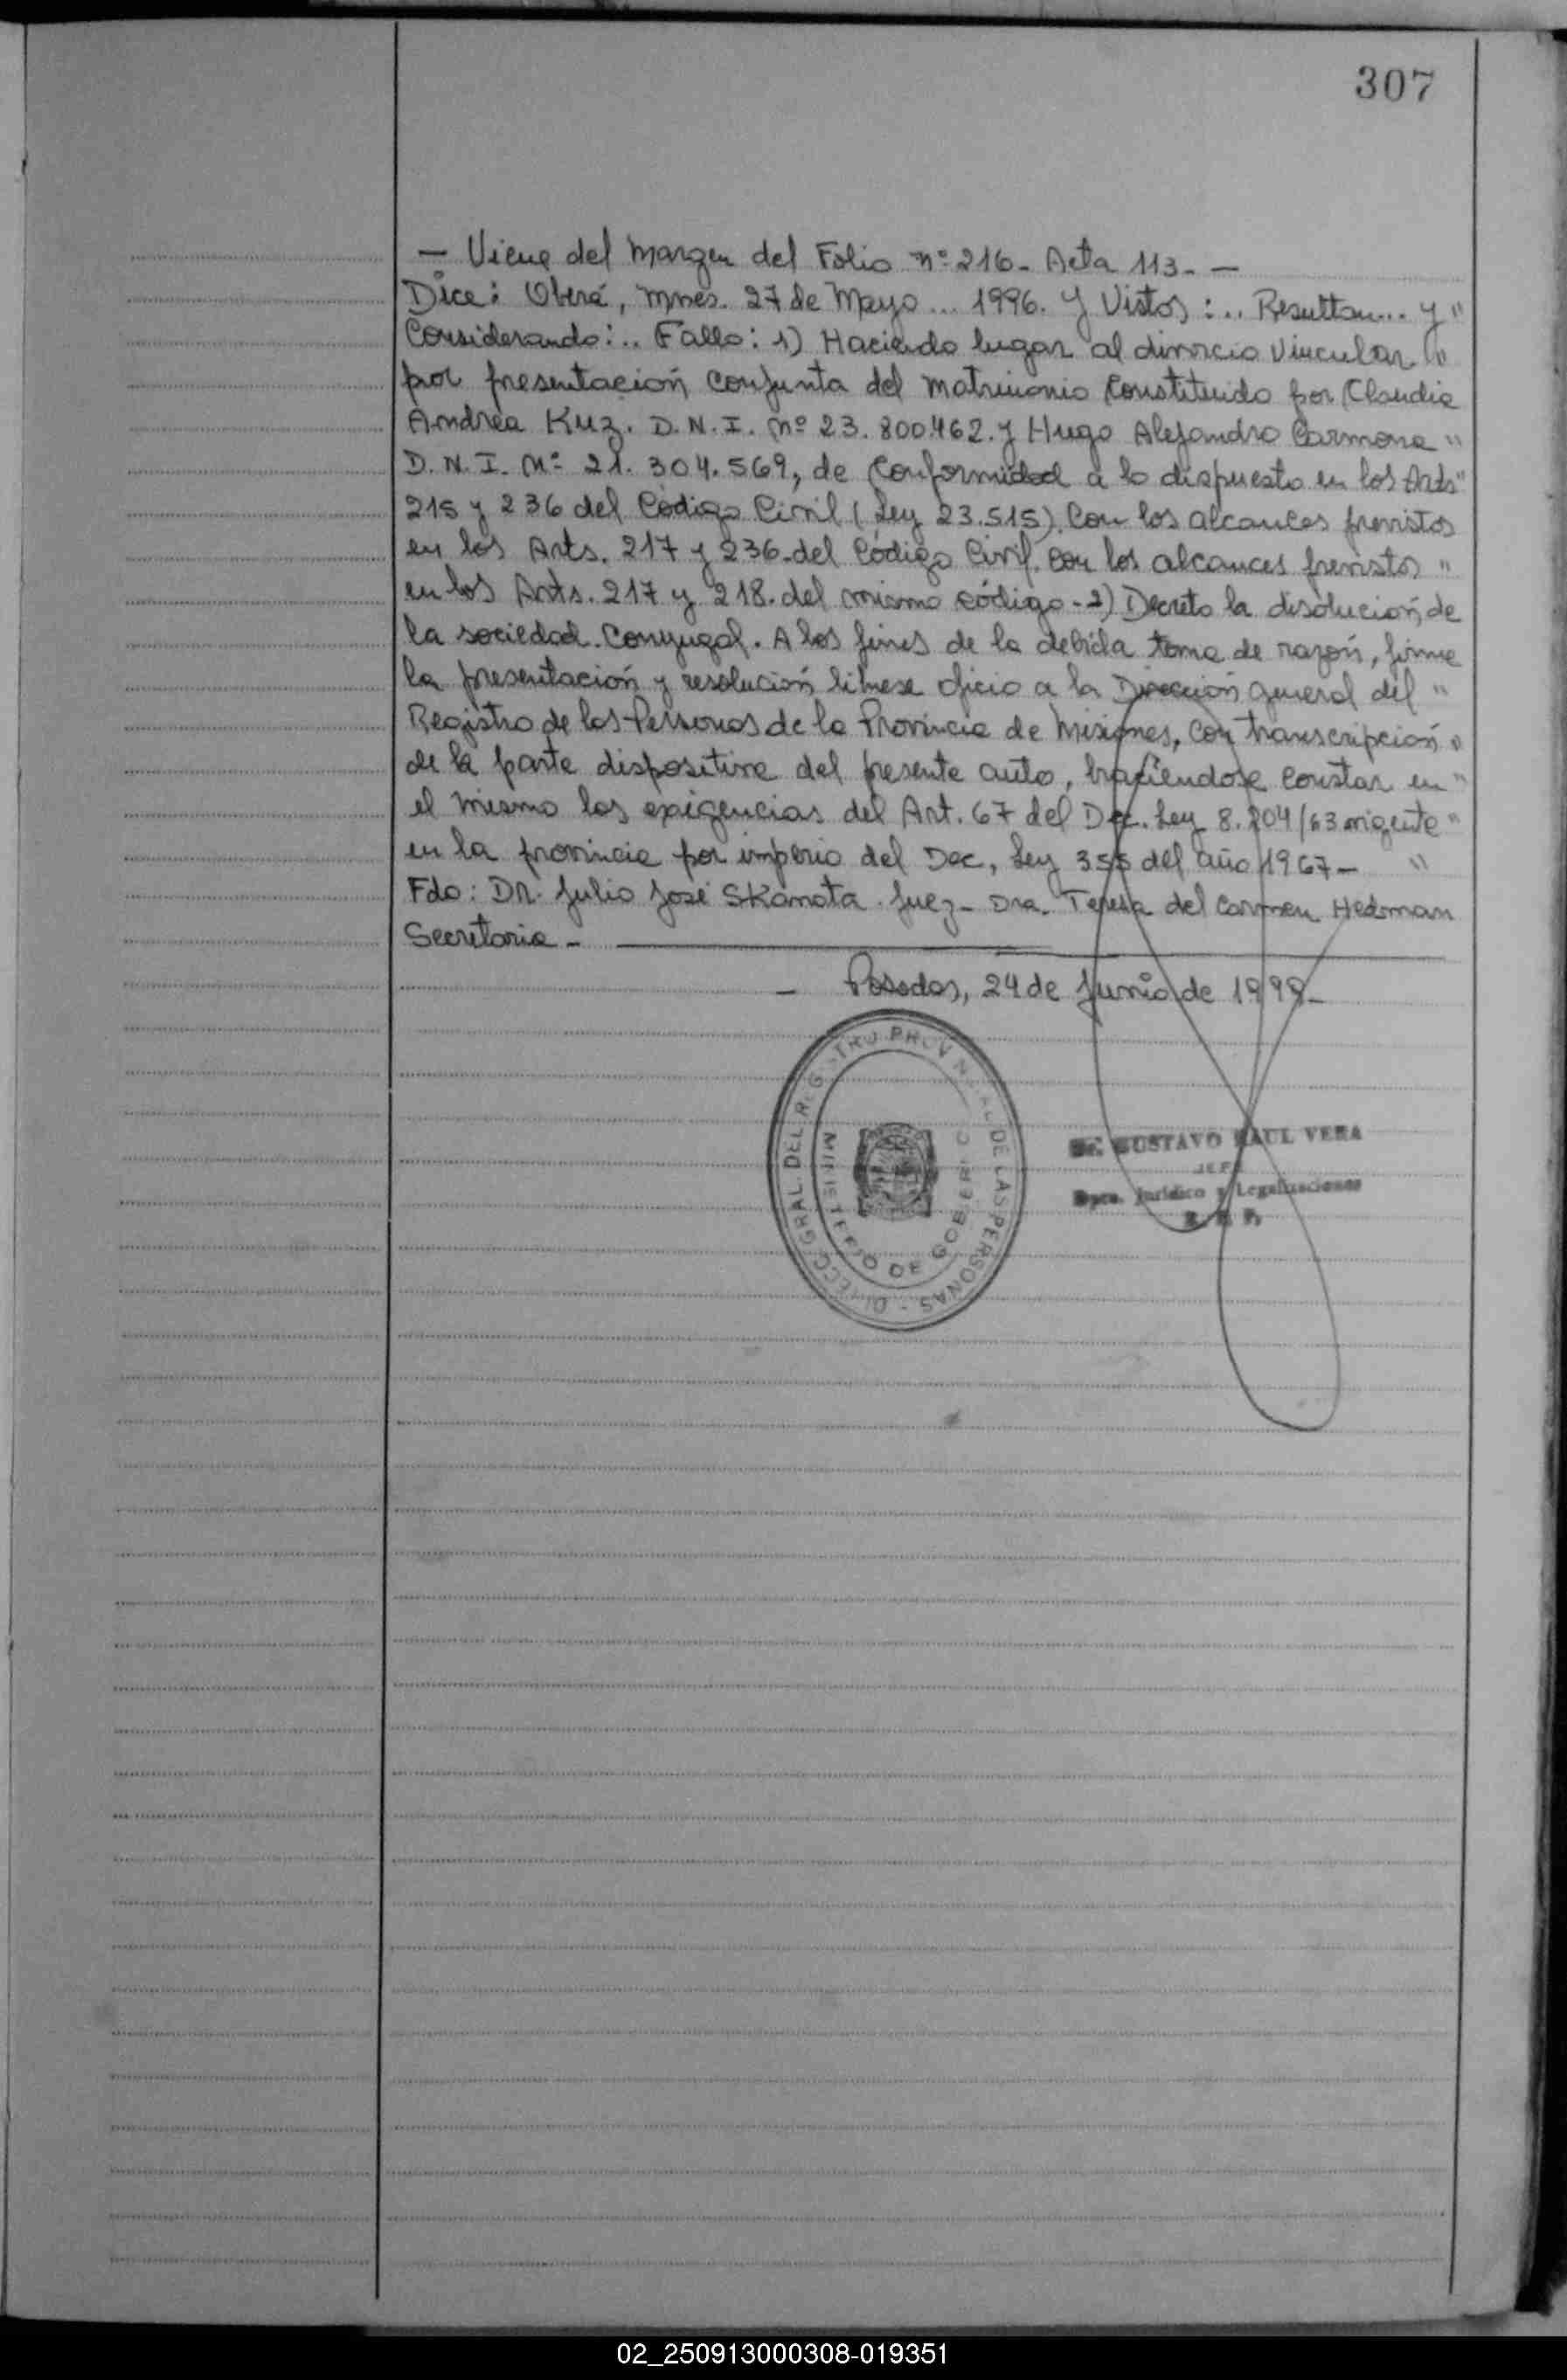 307
— Viene del Margen del Folio nº 216 - Acta 113 - —
Dice: Oberá, Mnes. 27 de Mayo ... 1996. Y Vistos: .. Resultan... y "
Considerando: .. Fallo: 1) Haciendo lugar al divorcio Vincular "
por presentación conjunta del Matrimonio Constituido por Claudia
Andrea Kuz. D.N.I. nº 23.800.462. y Hugo Alejandro Carmona "
D.N.I. Nº 21.304.569, de Conformidad a lo dispuesto en los Arts "
215 y 236 del Código Civil (Ley 23.515). Con los alcances previstos
en los Arts. 217 y 236 - del Código Civil. con los alcances previstos "
en los Arts. 217 y 218. del mismo código - 2) Decreto la disolución de
la sociedad. Conyugal. A los fines de la debida toma de razón, firme
la presentación y resolución líbrese oficio a la Dirección general del "
Registro de las Personas de la Provincia de Misiones, con transcripción "
de la parte dispositiva del presente auto, haciendose constar en "
el mismo las exigencias del Art. 67 del Dec. Ley 8.204/63 vigente "
en la provincia por imperio del Dec, Ley 355 del año 1967 - "
Fdo: Dr. Julio José Skanata. Juez - Dra. Teresa del Carmen Hedman
Secretaria -
— Posadas, 24 de Junio de 1998 -
DIRECC. GRAL. DEL REGISTRO PROVINCIAL DE LAS PERSONAS -
MINISTERIO DE GOBIERNO
Dr. GUSTAVO RAUL VERA
JEFE
Dpto. Jurídico y Legalizaciones
R. P. P.
02_250913000308-019351